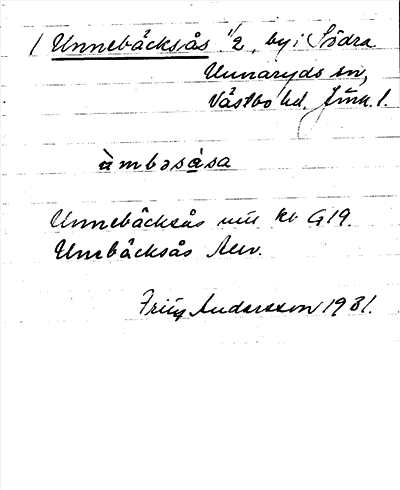 / Unnebäcksås 1/2, by i Södra
Unnaryds sn,
Västbo hd. Jönk. l.
ùmbəsása
Unnebäcksås rub kb G19.
Unebäcksås Alm.
Fritz Andersson 1931.